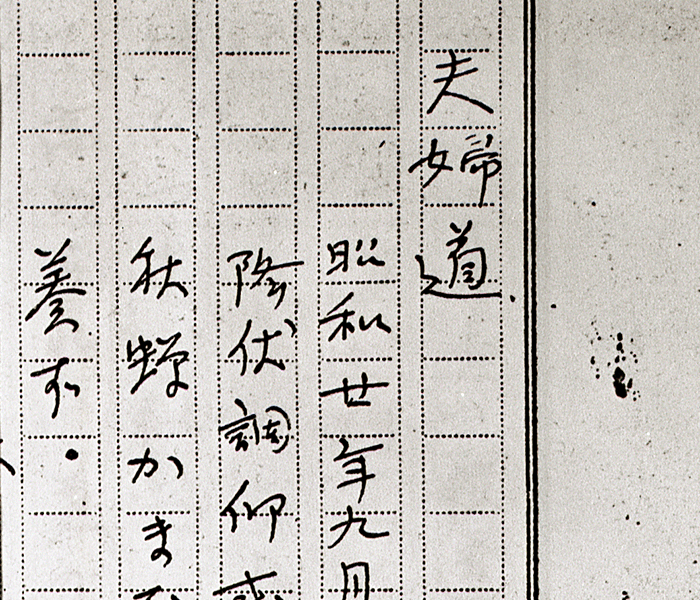 夫婦道
昭和廿年九月
降伏調仰
秋蟬かま
養す。